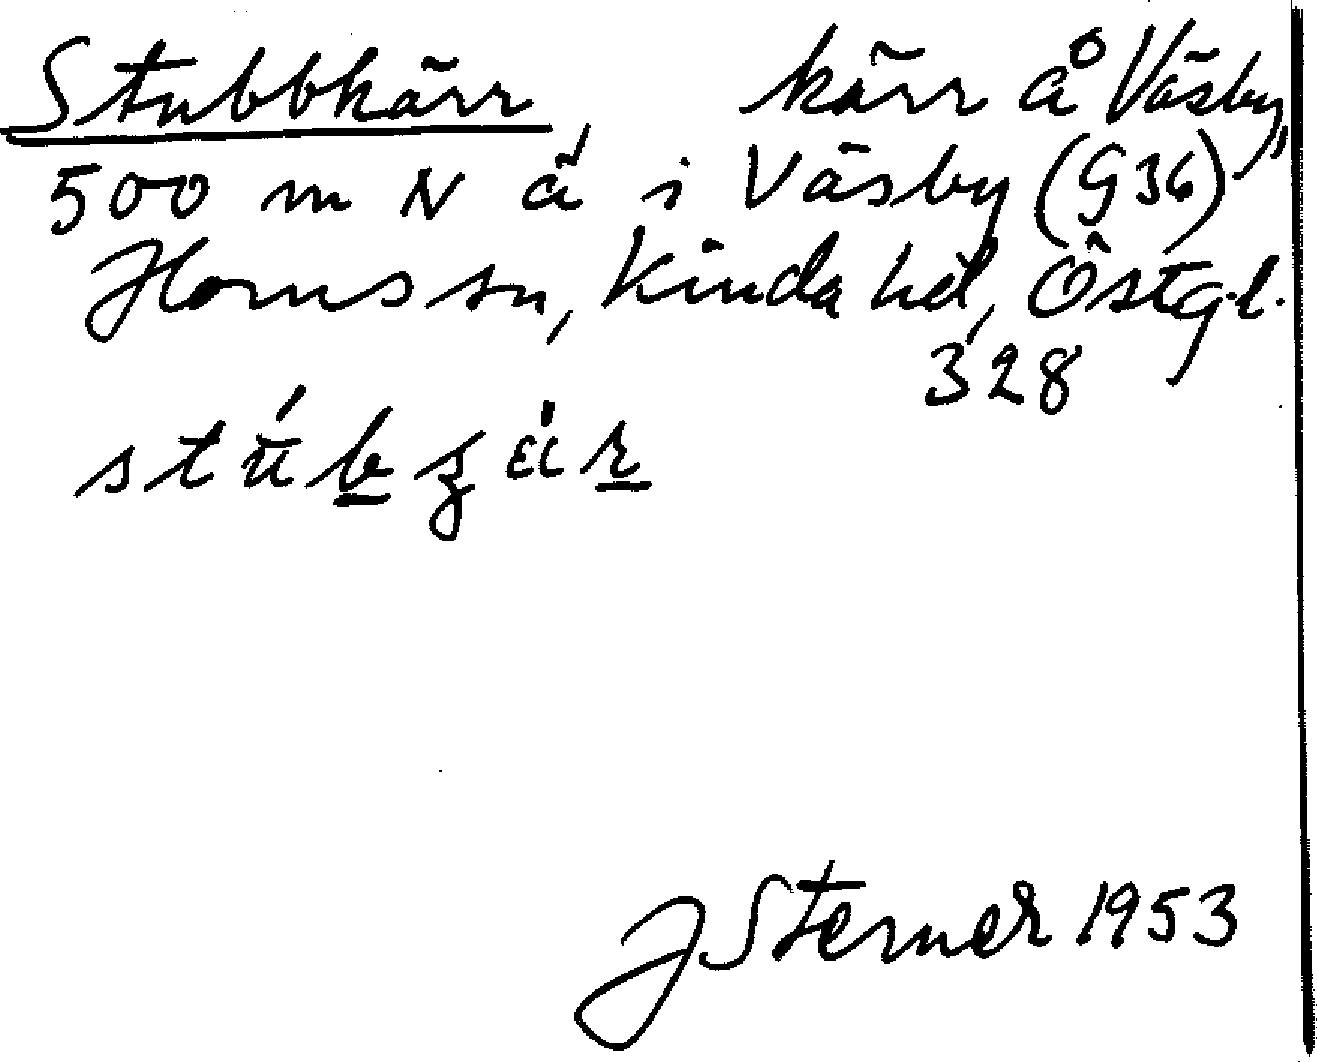 Stubbkärr, kärr å Väsby,
500 m N ä i Väsby (G36)
Horns sn, Kinda hd, Östg.l.
328
J Sterner 1953